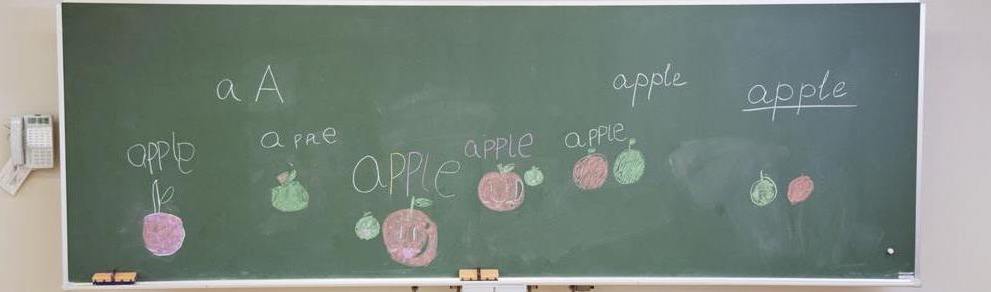 a A
apple
apple
apple
appe
apple
apple
apple